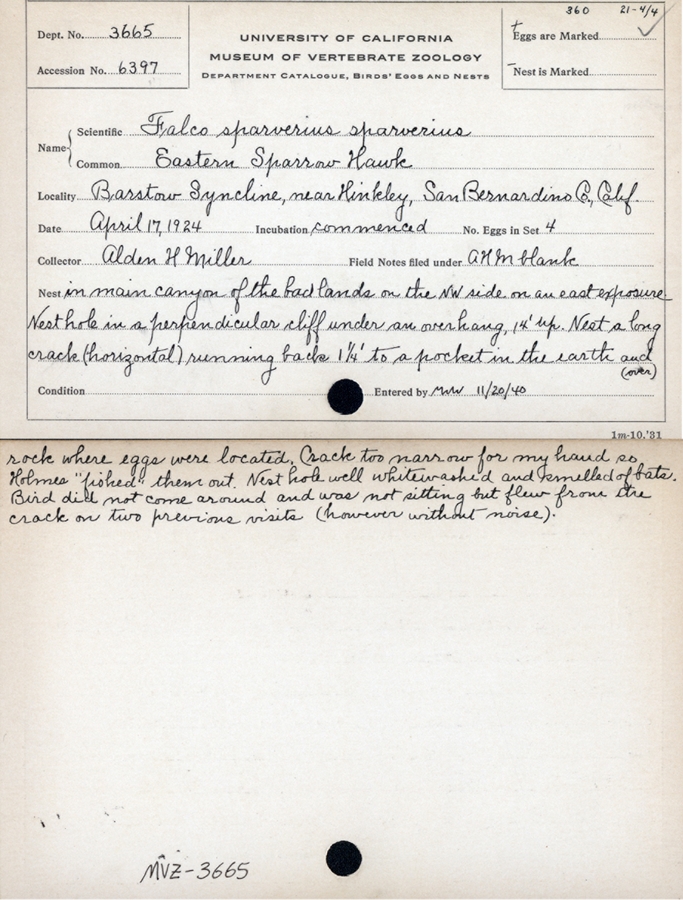 360 21-4/4
Dept. No. 3665
UNIVERSITY OF CALIFORNIA
+Eggs are Marked
MUSEUM OF VERTEBRATE ZOOLOGY
Accession No. 6397
DEPARTMENT CATALOGUE, BIRDS' EGGS AND NESTS
-Nest is Marked
Name
Scientific Falco sparverius sparverius
Common Eastern Sparrow Hawk
Locality Barstow Syncline, near Hinkley, San Bernardino Co., Calif.
Date April 17, 1924 Incubation commenced No. Eggs in Set 4
Collector Alden H Miller Field Notes filed under AHM blank
Nest in main canyon of the bad lands on the NW side on an east exposure
Nest hole in a perpendicular cliff under an over hang, 14' up. Nest a long
crack (horizontal) running back 1¼' to a pocket in the earth and
(over)
Condition Entered by MW 11/20/40
1m-10,'31
rock where eggs were located. Crack too narrow for my hand so
Holmes "fished" them out. Nest hole well whitewashed and smelled of bats.
Bird did not come around and was not sitting but flew from the
crack on two previous visits (however without noise).
MVZ-3665